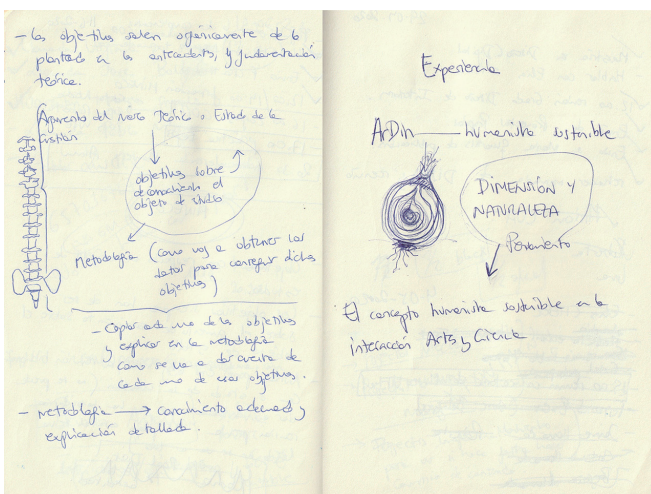 - Los objetivos salen orgánicamente de lo
planteado en los antecedentes, y fundamentación
teórica.
Argumento del Marco Teórico o Estado de la
Cuestión
objetivos sobre
el
objeto de estudio
Metodología (Como voy a obtener los
datos para conseguir dichos
objetivos)
- Copiar cada uno de los objetivos
y explicar en la metodología
como se va a dar cuenta de
cada uno de esos objetivos.
- Metodología → conocimiento adecuado y
explicación detallada.
Experiencia
ArDin — humanista sostenible
DIMENSIÓN Y
NATURALEZA
Pensamiento
El concepto humanista sostenible en la
interacción Arts y Ciencia